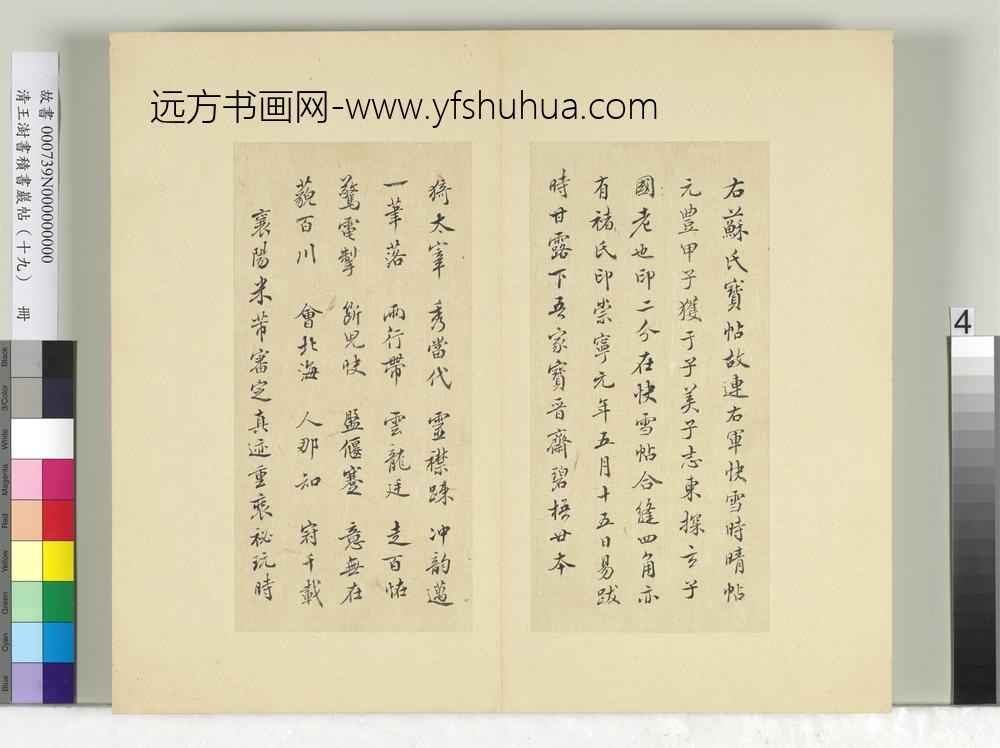 远方书画网-www.yfshuhua.com
故書 000739N000000000
清王澍書積書巖帖（十九） 冊
右蘇氏寶帖故連右軍快雪時晴帖
元豐甲子獲于子美子志東探玄子
國老也印二分在快雪帖合縫四角亦
有褚氏印崇寧元年五月十五日易跋
時甘露下吾家寶晉齋碧梧廿本
猗太宰 秀當代 靈襟疎 冲韵邁
一筆落 兩行帶 雲龍廷 走百怪
驚電掣 斷兕快 盤偃蹇 意無在
藐百川 會北海 人那知 冠千載
襄陽米芾審定真迹重裘秘玩時
4
Black
3/Color
White
Magenta
Red
Yellow
Green
Cyan
Blue